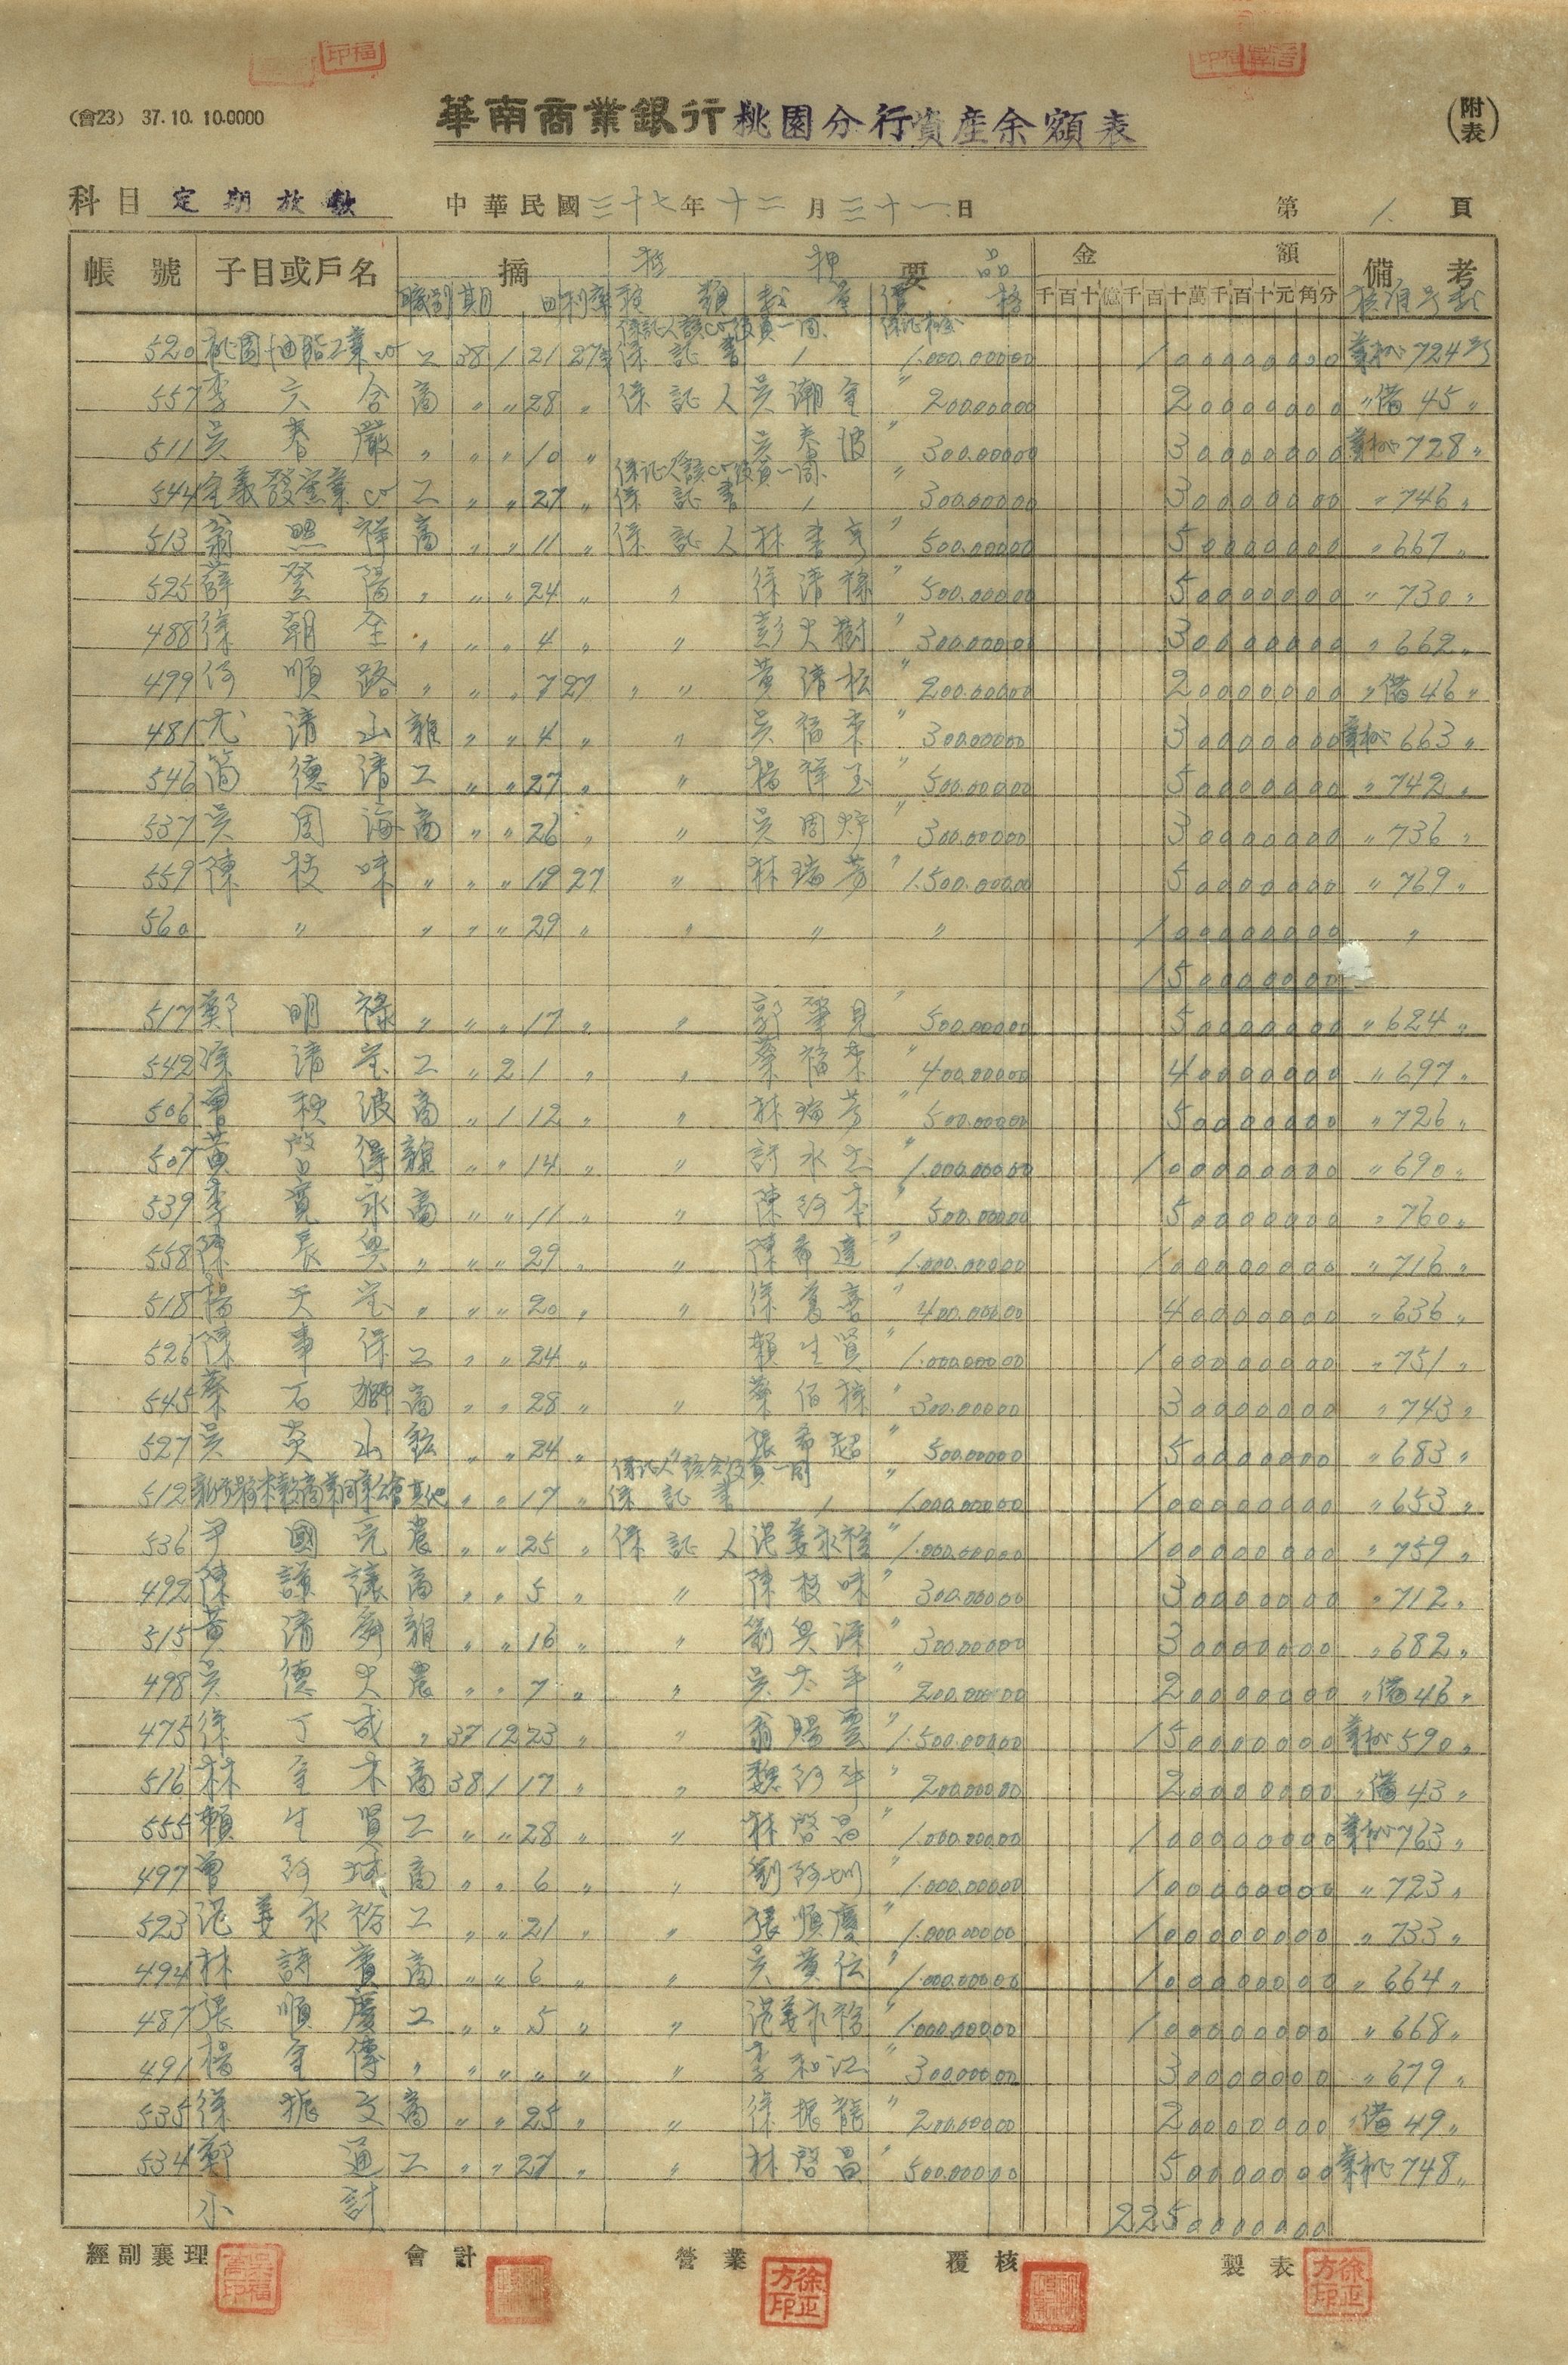 (會23) 37.10.10.0000
華南商業銀行桃園分行資産余額表
(附表)
科目 定期放款 中華民國三十七年十二月三十一日 第 1. 頁
帳號 子目或戶名 摘要 抵押品 金額 備考
職別 期日 利率 種類 數量 價格 千百十億千百十萬千百十元角分 核准号數
保証人該co役員一同 保証相金
520 桃園油脂工業co 工 38 1 21 27 保証書 1 1.000.000 00 1 0 0 0 0 0 0 0 0 業秘724
557 李六合 商 〃 〃 28 〃 保証人 吳潮金 〃 200.000 00 2 0 0 0 0 0 0 0 〃備45〃
511 吳春嚴 〃 〃 〃 10 〃 吳春波 〃 300.000 00 3 0 0 0 0 0 0 0 業秘728〃
保証人該co役員一同
544 金義發窯業co 工 〃 〃 27 〃 保証書 1 〃 300.000 00 3 0 0 0 0 0 0 0 〃746〃
513 翁照祥 商 〃 〃 11 〃 保証人 林書亨 〃 500.000 00 5 0 0 0 0 0 0 0 〃667〃
525 薛登陽 〃 〃 〃 24 〃 〃 徐清祿 〃 500.000 00 5 0 0 0 0 0 0 0 〃730〃
488 徐朝全 〃 〃 〃 4 〃 〃 彭火樹 〃 300.000 00 3 0 0 0 0 0 0 0 〃662〃
499 何順路 〃 〃 〃 7 27 〃 〃 黃清松 〃 200.000 00 2 0 0 0 0 0 0 0 〃備46〃
481 尤清山 雜 〃 〃 4 〃 〃 吳福來 〃 300.000 00 3 0 0 0 0 0 0 0 業秘663〃
546 簡德清 工 〃 〃 27 〃 〃 楊祥玉 〃 500.000 00 5 0 0 0 0 0 0 0 〃742〃
537 吳周海 商 〃 〃 26 〃 〃 吳周 〃 300.000 00 3 0 0 0 0 0 0 0 〃736〃
559 陳枝味 〃 〃 〃 19 27 〃 林瑞芳 〃 1.500.000 00 5 0 0 0 0 0 0 0 〃769〃
560 〃 〃 〃 〃 29 〃 〃 〃 〃 1 0 0 0 0 0 0 0 0 〃
1 5 0 0 0 0 0 0 0
517 鄭明祿 〃 〃 〃 17 〃 〃 郭肇見 〃 500.000 00 5 0 0 0 0 0 0 0 〃624〃
542 清宝 工 〃 2 1 〃 〃 蔡福來 〃 400.000 00 4 0 0 0 0 0 0 0 〃697〃
506 曾秋波 商 〃 1 12 〃 〃 林瑞芳 500.000 00 5 0 0 0 0 0 0 0 〃726〃
507 黃啓得 雜 〃 〃 14 〃 〃 許水 〃 1.000.000 00 1 0 0 0 0 0 0 0 0 〃690〃
539 李寬永 商 〃 〃 11 〃 〃 陳阿李 〃 500.000 00 5 0 0 0 0 0 0 0 〃760〃
558 陳長興 〃 〃 〃 29 〃 〃 陳希達 〃 1.000.000 00 1 0 0 0 0 0 0 0 0 〃716〃
518 楊天宝 〃 〃 〃 20 〃 〃 徐喜 〃 400.000 00 4 0 0 0 0 0 0 0 〃636〃
526 陳事保 工 〃 〃 24 〃 賴生賢 〃 1.000.000 00 1 0 0 0 0 0 0 0 0 〃751〃
545 蔡石獅 商 〃 〃 28 〃 〃 蔡佰祿 〃 300.000 00 3 0 0 0 0 0 0 0 〃743〃
527 吳英山 鉱 〃 〃 24 〃 〃 張希超 〃 500.000 00 5 0 0 0 0 0 0 0 〃683〃
保証人該会役員一同
512 其他 〃 〃 17 〃 保証書 1 〃 1.000.000 00 1 0 0 0 0 0 0 0 0 〃653〃
536 尹國亮 農 〃 〃 25 〃 保証人 范姜永裕 〃 1.000.000 00 1 0 0 0 0 0 0 0 0 〃759〃
492 陳謙讓 商 〃 〃 5 〃 〃 陳枝味 〃 300.000 00 3 0 0 0 0 0 0 0 〃712〃
515 黃清舜 雜 〃 〃 16 〃 〃 劉興深 〃 300.000 00 3 0 0 0 0 0 0 0 〃682〃
498 吳德火 農 〃 〃 7 〃 〃 吳太平 〃 200.000 00 2 0 0 0 0 0 0 0 〃備46〃
475 徐丁成 〃 37 12 23 〃 〃 翁賜雲 〃 1.500.000 00 1 5 0 0 0 0 0 0 0 業秘590〃
516 林金木 商 38 1 17 〃 〃 魏阿 〃 200.000 00 2 0 0 0 0 0 0 0 〃備43〃
555 賴生賢 工 〃 〃 28 〃 〃 林啓昌 〃 1.000.000 00 1 0 0 0 0 0 0 0 0 業秘763〃
497 曾阿城 商 〃 〃 6 〃 〃 劉阿圳 〃 1.000.000 00 1 0 0 0 0 0 0 0 0 〃723〃
523 范姜永裕 工 〃 〃 21 〃 〃 張順慶 〃 1.000.000 00 1 0 0 0 0 0 0 0 0 〃733〃
494 林詩賓 商 〃 〃 6 〃 吳黃伝 〃 1.000.000 00 1 0 0 0 0 0 0 0 0 〃664〃
487 張順慶 工 〃 〃 5 〃 〃 范姜永裕 〃 1.000.000 00 1 0 0 0 0 0 0 0 0 〃668〃
491 楊金傳 〃 〃 〃 〃 〃 〃 李和江 〃 300.000 00 3 0 0 0 0 0 0 0 〃679〃
535 徐振文 商 〃 〃 25 〃 〃 徐振龍 〃 200.000 00 2 0 0 0 0 0 0 0 〃備49〃
534 鄭通 工 〃 〃 27 〃 〃 林啓昌 〃 500.000 00 5 0 0 0 0 0 0 0 業秘748〃
小計 2 2 5 0 0 0 0 0 0 0
經副襄理 會計 營業 覆核 製表
徐正方印 徐正方印